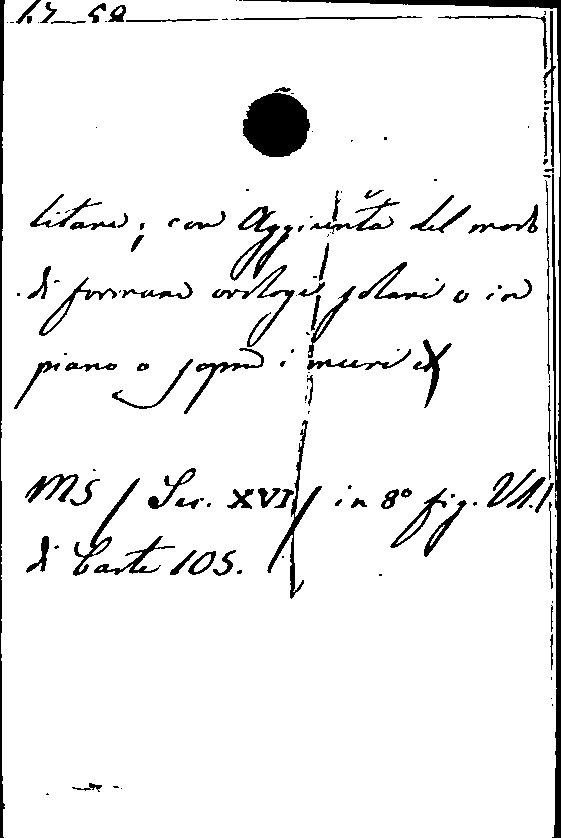 litare; con Aggiunta del modo
di formare orologi solari o in
piano o sopra i muri
MS / Sec. XVI / in 8° fig. VA.I
di Carte 105.